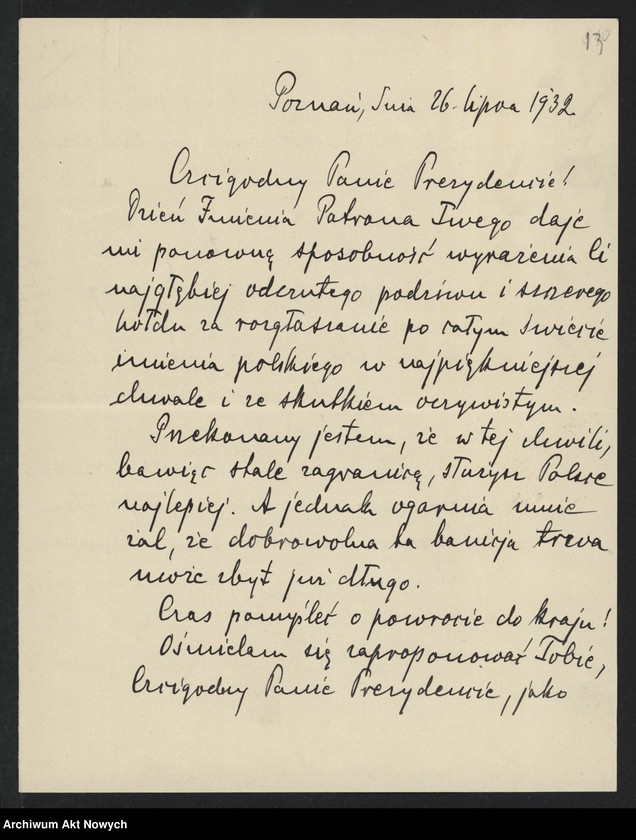 13
Poznań, dnia 26. lipca 1932.
Czcigodny Panie Prezydencie!
Dzień Imienia Patrona Twego daje
mi ponowną sposobność wyrażenia Ci
najgłębiej odczutego podziwu i szczerego
hołdu za rozgłaszanie po całym świecie
imienia polskiego w najpiękniejszej
chwale i ze skutkiem oczywistym.
Przekonany jestem, że w tej chwili,
bawiąc stale zagranicą, służysz Polsce
najlepiej. A jednak ogarnia mnie
żal, że dobrowolna ta banicja trwa
może zbyt już długo.
Czas pomyśleć o powrocie do kraju!
Ośmielam się zaproponować Tobie,
Czcigodny Panie Prezydencie, jako
Archiwum Akt Nowych